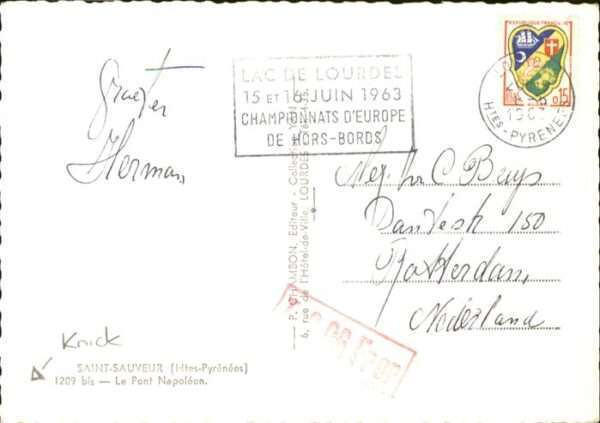 Groeten
Herman
LAC DE LOURDES
15 ET 16 JUIN 1963
CHAMPIONNATS D'EUROPE
DE HORS-BORDS
REPUBLIQUE FRANÇAISE
0,15
1963
HTES-PYRENEES
C Buys
150
Rotterdam,
Nederland
P. CHAMBON, Editeur - Collection
6, rue de l'Hôtel-de-Ville, LOURDES
Knick
SAINT-SAUVEUR (Htes-Pyrénées)
1209 bis — Le Pont Napoléon.